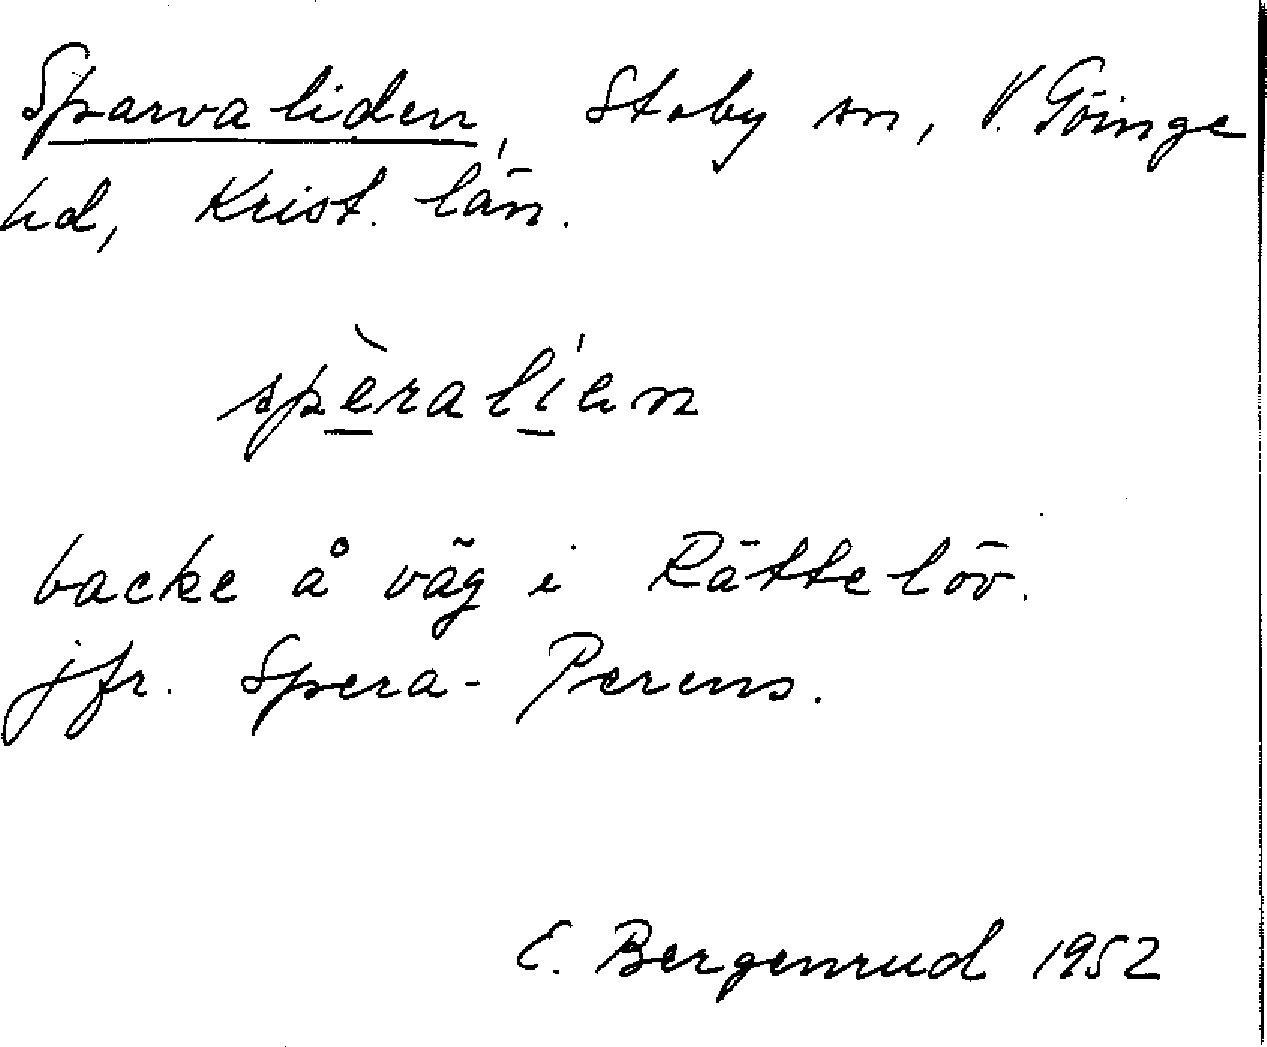 Sparvaliden, Stoby sn, V. Göinge
hd, Krist. län.
spèralíen
backe å väg i Rättelöv.
jfr. Spera-Perens.
E. Bergenrud 1952